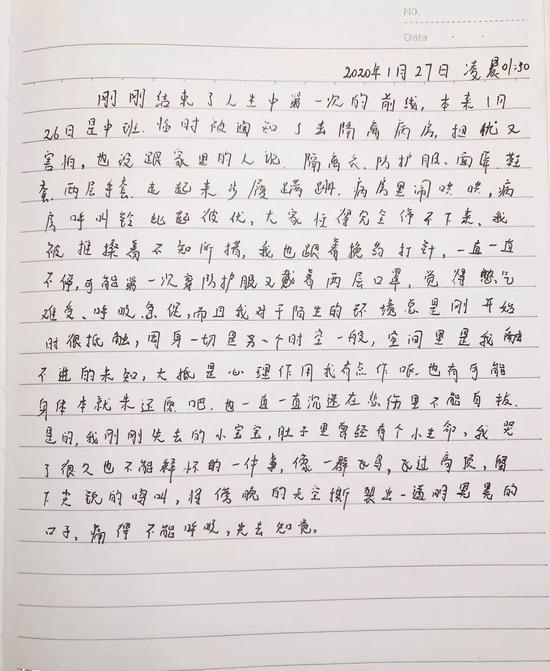 NO.
Date
2020年1月27日 凌晨01:30
刚刚结束了人生中第一次的前线,本来1月
26日是中班.临时被通知了去隔离病房,担忧又
害怕,也没跟家里的人说.隔离衣、防护服、面屏、鞋
套、两层手套.走起来步履蹒跚.病房里闹哄哄,病
房呼叫铃此起彼伏,大家忙得完全停不下来、我
被推搡着不知所措,我也跟着换药打针,一直一直
不停,可能第一次穿防护服又戴着两层口罩,觉得憋气
难受、呼吸急促,而且我对于陌生的环境总是刚开始
时很抵触,周身一切是另一个时空一般,空间里是我融
不进的未知,大抵是心理作用我有点作呕.也有可能
身体本就未还原吧.也一直一直沉迷在悲伤里不能自拔.
是的,我刚刚失去的小宝宝,肚子里曾经有个小生命,我哭
了很久也不能释怀的一件事,像一群飞鸟,飞过高顶,留
下尖锐的鸣叫,将傍晚的天空撕裂出一透明晃晃的
口子,痛得不能呼吸,失去知觉。